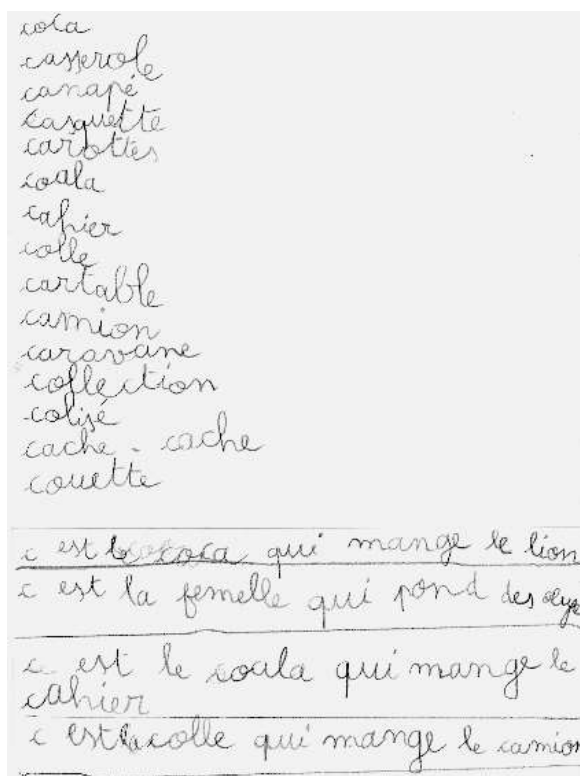 coca
casserole
canapé
casquette
carottes
coala
cahier
colle
cartable
camion
caravane
collection
colisé
cache - cache
couette
c est le coca qui mange le lion
c est la femelle qui pond des
c est le coala qui mange le
cahier
c est la colle qui mange le camion